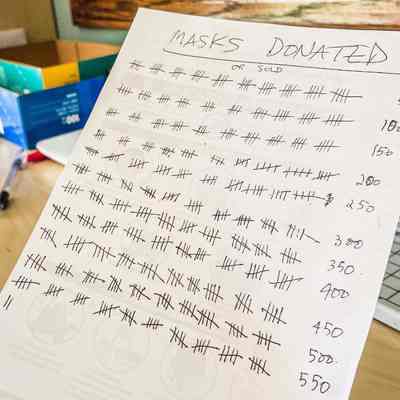 MASKS DONATED
OR SOLD
150
200
250
300
350
400
450
500
550